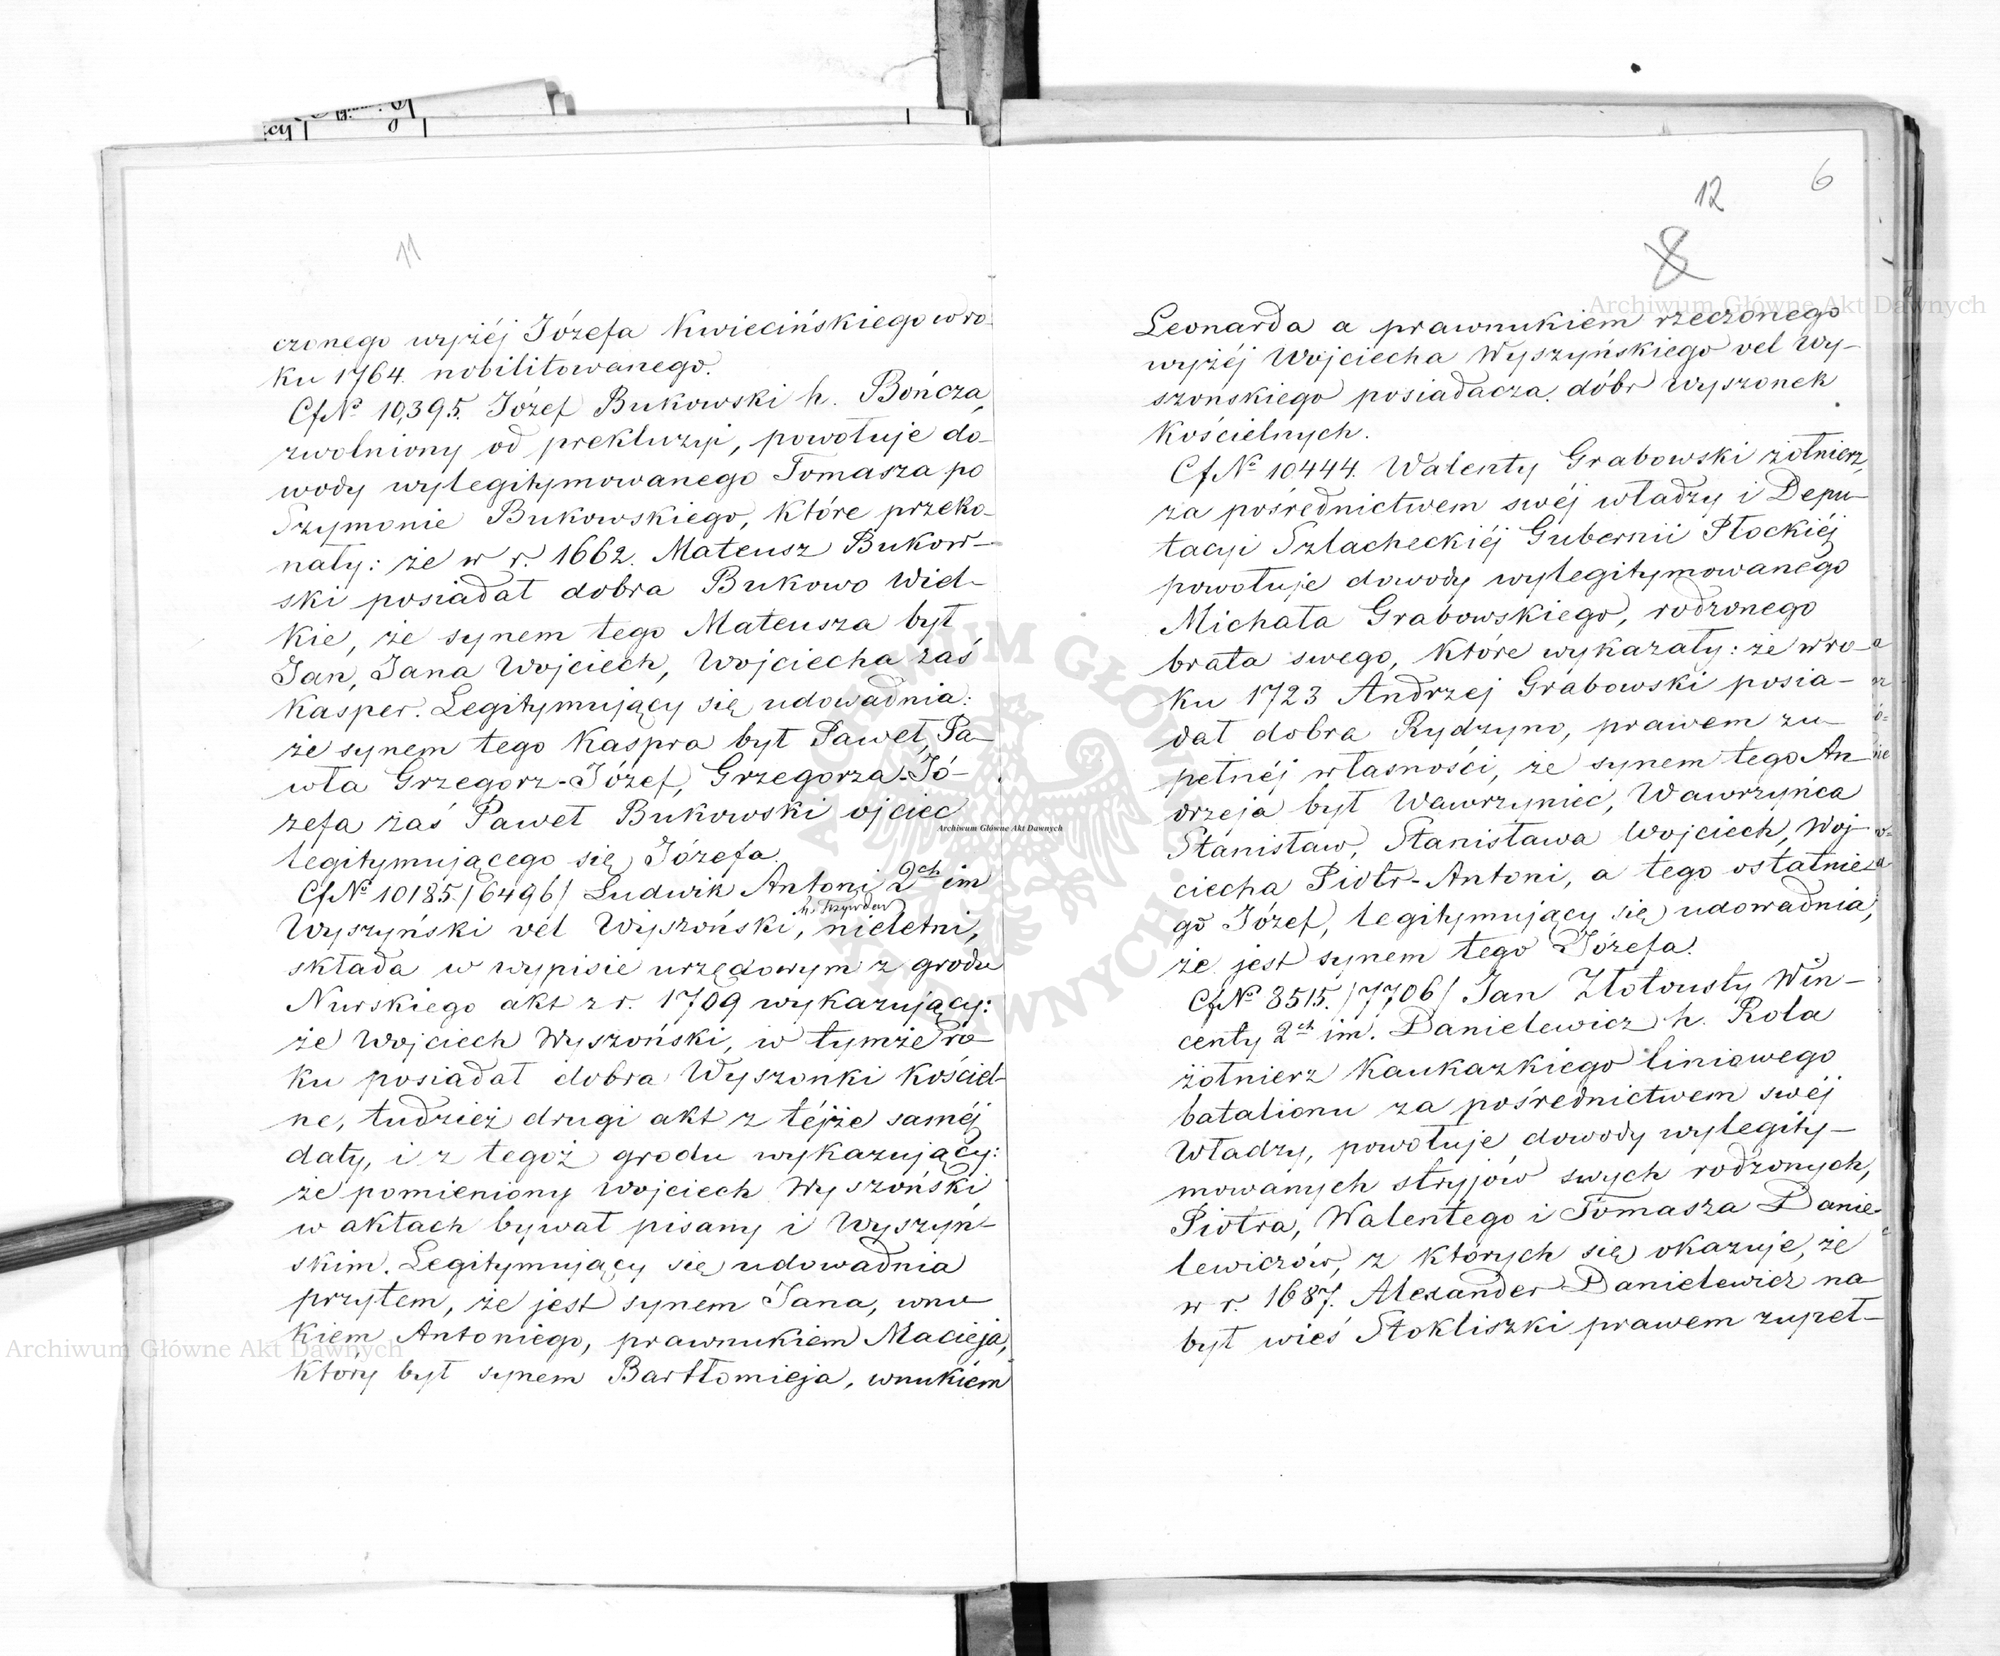 11
czonego wyżéj Józefa Kwiecińskiego w ro-
ku 1764. nobilitowanego.
Cf№ 10,395. Józef Bukowski h. Bończa,
zwolniony od prekluzyi, powołuje do-
wody wylegitymowanego Tomasza po
Szymonie Bukowskiego, które przeko-
nały: że w r. 1662. Mateusz Bukow-
ski posiadał dobra Bukowo Wiel-
kie, że synem tego Mateusza był
Jan, Jana Wojciech, Wojciecha zaś
Kasper. Legitymujący się udowadnia:
że synem tego Kaspra był Paweł, Pa-
wła Grzegorz-Józef, Grzegorza-Jó-
zefa zaś Paweł Bukowski ojciec
legitymującego się Józefa.
Cf№ 10185./6496/ Ludwik Antoni 2ch im
h. Trzywdar
Wyszyński vel Wyszoński, nieletni,
składa w wypisie urzędowym z grodu
Nurskiego akt z r. 1709 wykazujący:
że Wojciech Wyszoński, w tymże ro-
ku posiadał dobra Wyszonki Kościel-
ne, tudzież drugi akt z téjże saméj
daty, i z tegoż grodu wykazujący:
że pomieniony Wojciech Wyszoński
w aktach bywał pisany i Wyszyń-
skim. Legitymujący się udowadnia
przytem, że jest synem Jana, wnu-
kiem Antoniego, prawnukiem Macieja,
który był synem Bartłomieja, wnukiem
6
12
8
Leonarda a prawnukiem rzeczonego
wyżéj Wojciecha Wyszyńskiego vel Wy-
szońskiego posiadacza dóbr Wyszonek
Kościelnych.
Cf№ 10444. Walenty Grabowski żołnierz,
za pośrednictwem swéj władzy i Depu-
tacyi Szlacheckiéj Gubernii Płockiéj
powołuje dowody wylegitymowanego
Michała Grabowskiego, rodzonego
brata swego, które wykazały: że w ro-
ku 1723 Andrzej Grabowski posia-
dał dobra Rydzyno, prawem zu-
pełnéj własności, że synem tego An-
drzeja był Wawrzyniec, Wawrzyńca
Stanisław, Stanisława Wojciech, Woj-
ciecha Piotr-Antoni, a tego ostatnie-
go Józef, legitymujący się udowadnia,
że jest synem tego Józefa.
Cf№ 8515./7706/ Jan Złotousty Win-
centy 2ch im. Danielewicz h. Rola
żołnierz Kaukazkiego liniowego
batalionu za pośrednictwem swéj
Władzy, powołuje dowody wylegity-
mowanych stryjów swych rodzonych,
Piotra, Walentego i Tomasza Danie-
lewiczów, z których się okazuje, że
w r. 1687. Alexander Danielewicz na-
był wieś Stokliszki prawem zupeł-
Archiwum Główne Akt Dawnych
Archiwum Główne Akt Dawnych
Archiwum Główne Akt Dawnych
ARCHIWUM GŁÓWNE AKT DAWNYCH